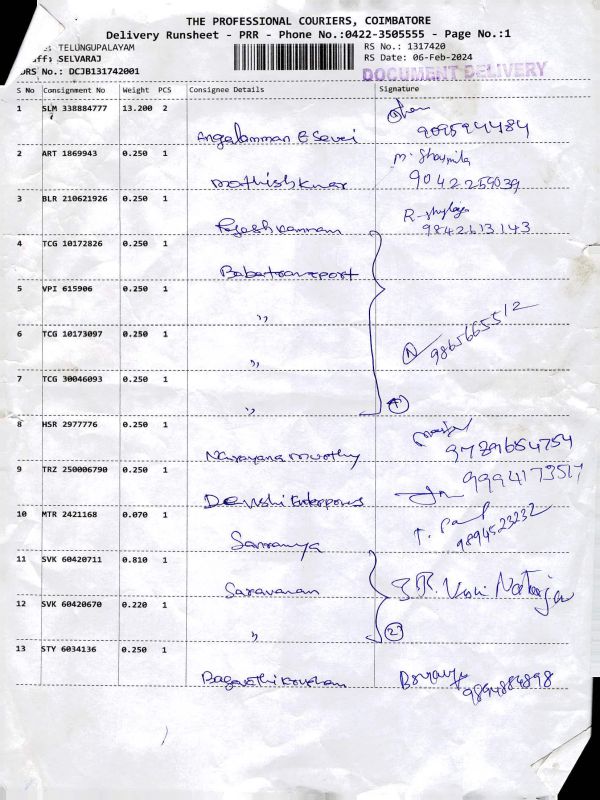 THE PROFESSIONAL COURIERS, COIMBATORE
Delivery Runsheet - PRR - Phone No.:0422-3505555 - Page No.:1
: TELUNGUPALAYAM RS No.: 1317420
: SELVARAJ RS Date: 06-Feb-2024
DRS No.: DCJB131742001 DOCUMENT DELIVERY
S No Consignment No Weight PCS Consignee Details Signature
1 SLM 338884777 13.200 2
Angalamman E Sevai 9095944484
2 ART 1869943 0.250 1 M. Sharmila
Mathishkumar 9042259039
3 BLR 210621926 0.250 1
Rajeshkannan 9842613143
4 TCG 10172826 0.250 1
Baba transport
5 VPI 615906 0.250 1
,,
6 TCG 10173097 0.250 1 9865665512
,,
7 TCG 30046093 0.250 1
,, 4
8 HSR 2977776 0.250 1
Narayana murthy 9789654754
9 TRZ 250006790 0.250 1 9994173517
Devashi Enterprises
10 MTR 2421168 0.070 1 T. Paul
Saranya 9894523232
11 SVK 60420711 0.810 1
Saravanan
12 SVK 60420670 0.220 1
,, 2
13 STY 6034136 0.250 1
Bagavathi krishnan 9894884898